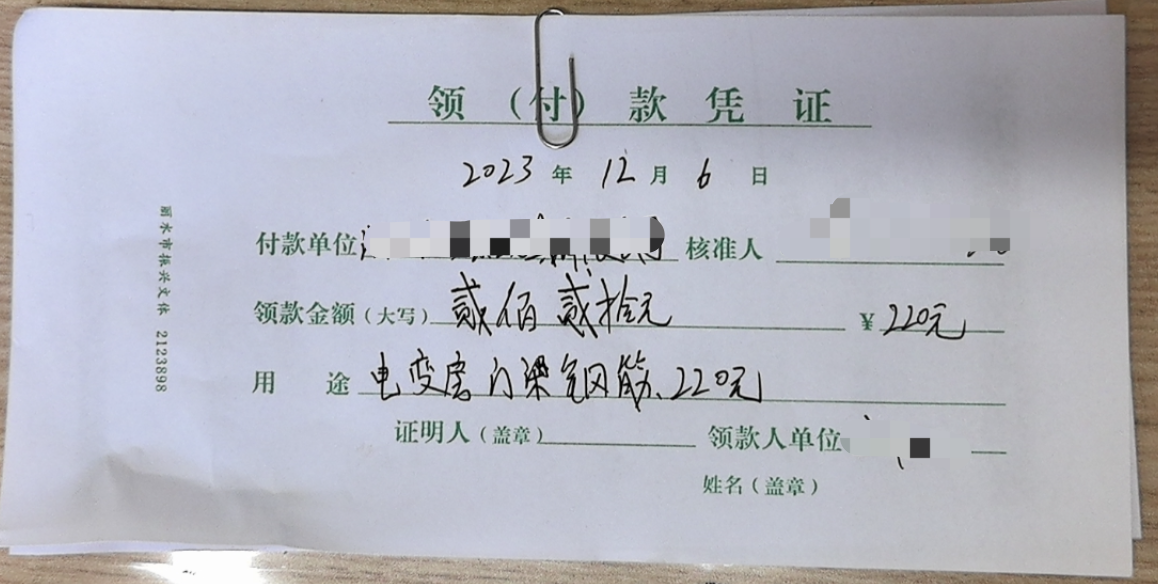 领（付）款凭证
2023年12月6日
付款单位 核准人
领款金额（大写）贰佰贰拾元 ￥220元
用途 电变房门梁钢筋、220元
证明人（盖章） 领款人单位
姓名（盖章）
丽水市振兴文体 2123898